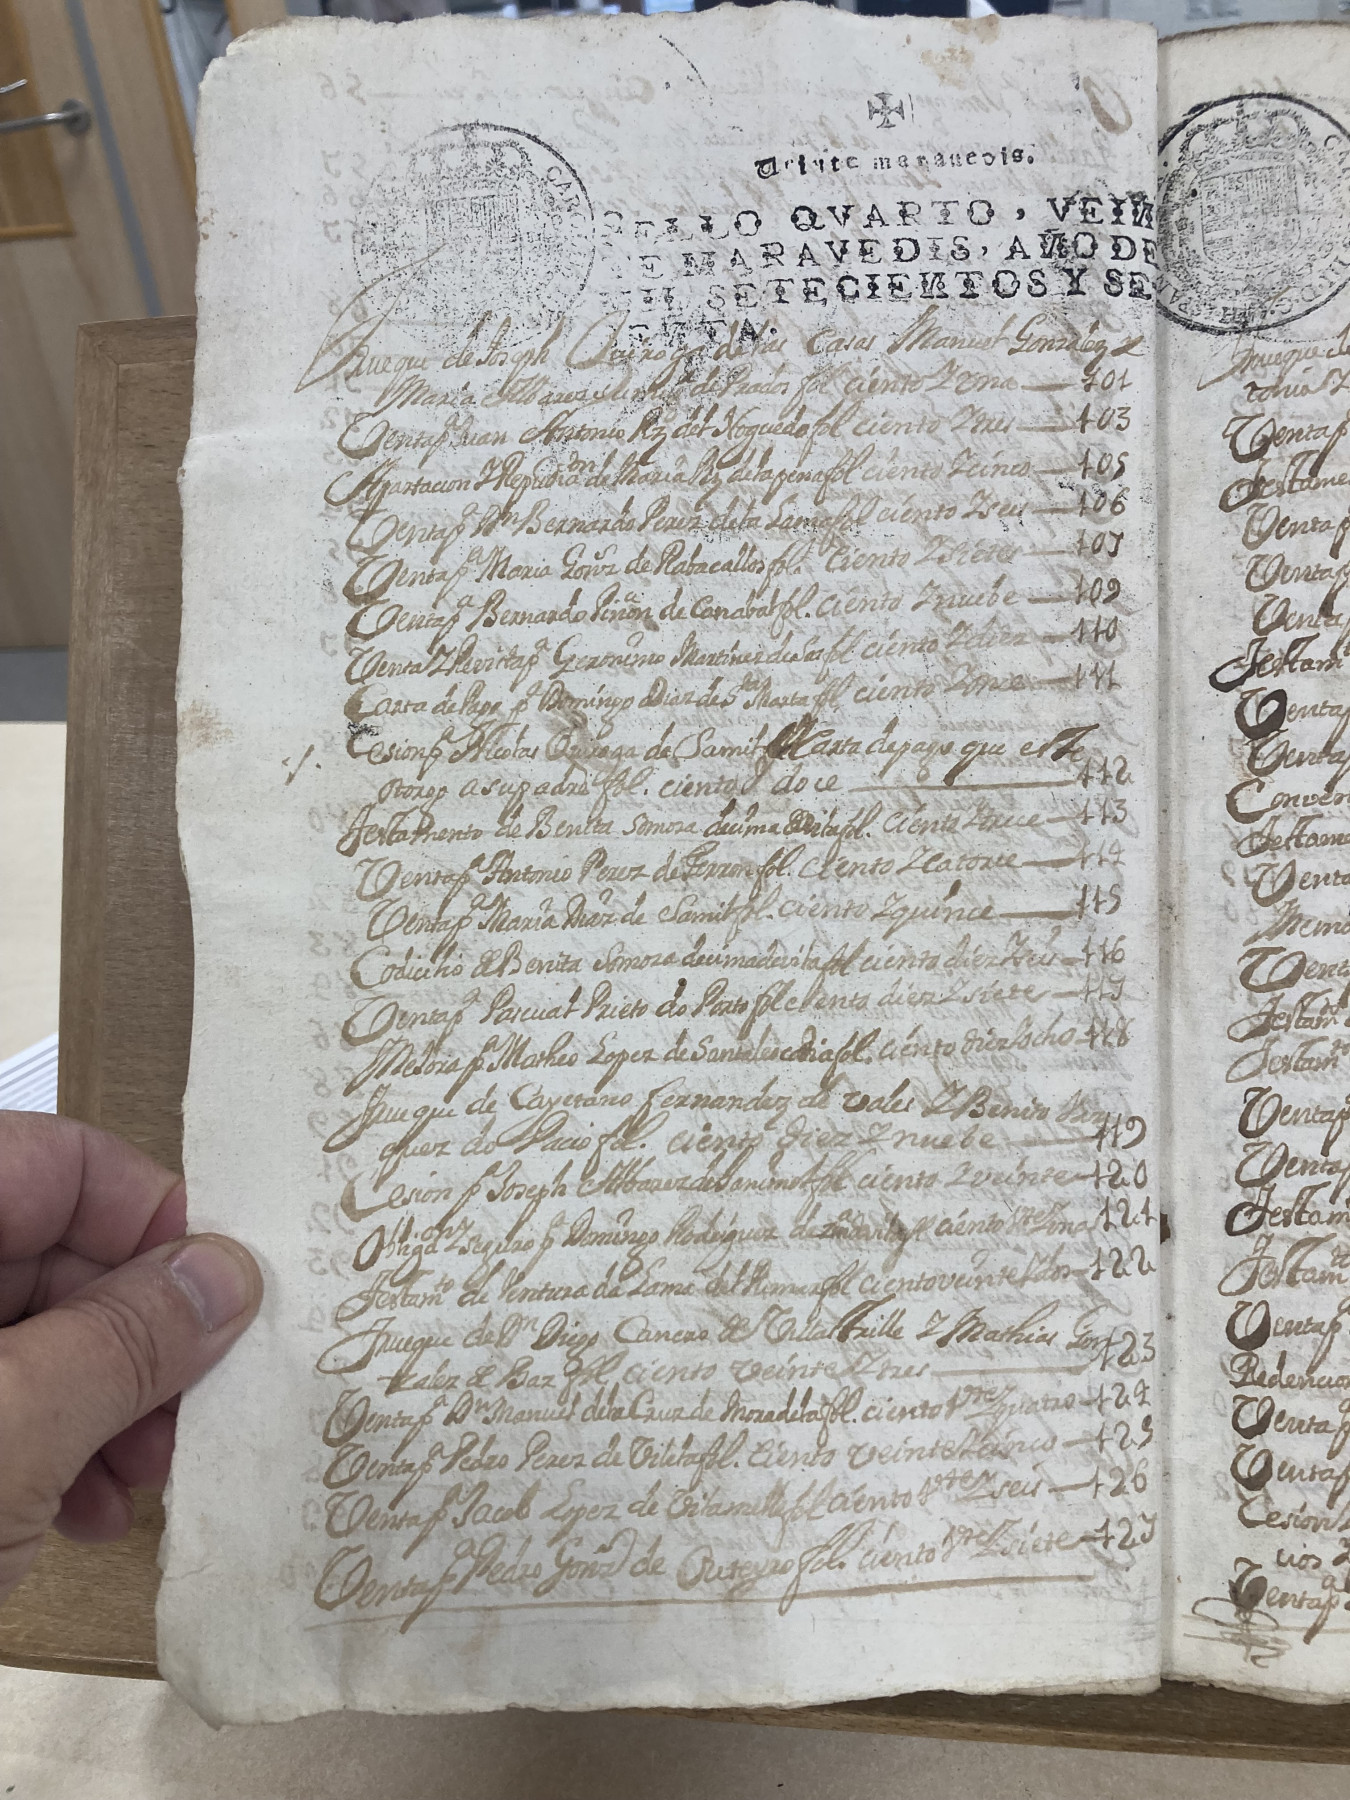 Veinte maravedis.
SELLO QVARTO, VEIN
TE MARAVEDIS, AÑO DE
MIL SETECIENTOS Y SE
TENTA.
Trueque de Joseph Quiroga de las Casas Manuel Gonzalez y
Maria Albarez de Prados fol ciento y una — 101
Venta pª Juan Antonio Rz del Noguedo fol ciento y tres — 103
Apartacion y Repudiaon de Maria Rz de la pena fol ciento y cinco — 105
Venta pª Dn Bernardo Perez de la Lama fol ciento y seis — 106
Venta pª Maria Gonz de Rabacallos fol. ciento y siete — 107
Venta pª Bernardo Piñon de Canabal fol. ciento y nuebe — 109
Venta y Revista pª Geronimo Martinez de Sas fol ciento y diez — 110
Carta de Pago pª Domingo Diaz de Sta Marta fol ciento y once — 111
Cesion pª Nicolas Quiroga de Samil y Carta de pago que este
otorgo a su padre fol. ciento y doce — 112
Testamento de Benita Somoza decima de vila fol. ciento y trece — 113
Venta pª Antonio Perez de Ferron fol. ciento y catorce — 114
Venta pª Maria Diaz de Samil fol. ciento y quince — 115
Codicilio de Benita Somoza decima de vila fol ciento diez y seis — 116
Venta pª Pascual Prieto do Porto fol ciento diez y siete — 117
Mejora pª Matheo Lopez de Santaleocadia fol. ciento diez y ocho — 118
Trueque de Cayetano Fernandez de Vales y Benito Vaz
quez do Pacio fol. ciento diez y nuebe — 119
Cesion pª Joseph Albarez de fol ciento y veinte — 120
Obligaon y seguro pª Domingo Rodriguez de fol ciento vte y una 121
Testamto de Ventura da Lama del fol ciento veinte y dos — 122
Trueque de Dn Diego Canero de Villastrille y Mathias Gon
zalez de Baz fol ciento veinte y tres — 123
Venta pª Dn Manuel de la Cruz de Moradela fol. ciento vte y quatro — 124
Venta pª Pedro Perez de Vilela fol. ciento veinte y cinco — 125
Venta pª Jacob Lopez de Vilamelle fol ciento vte y seis — 126
Venta pª Pedro Gonz de Outeyro fol. ciento vte y siete — 127